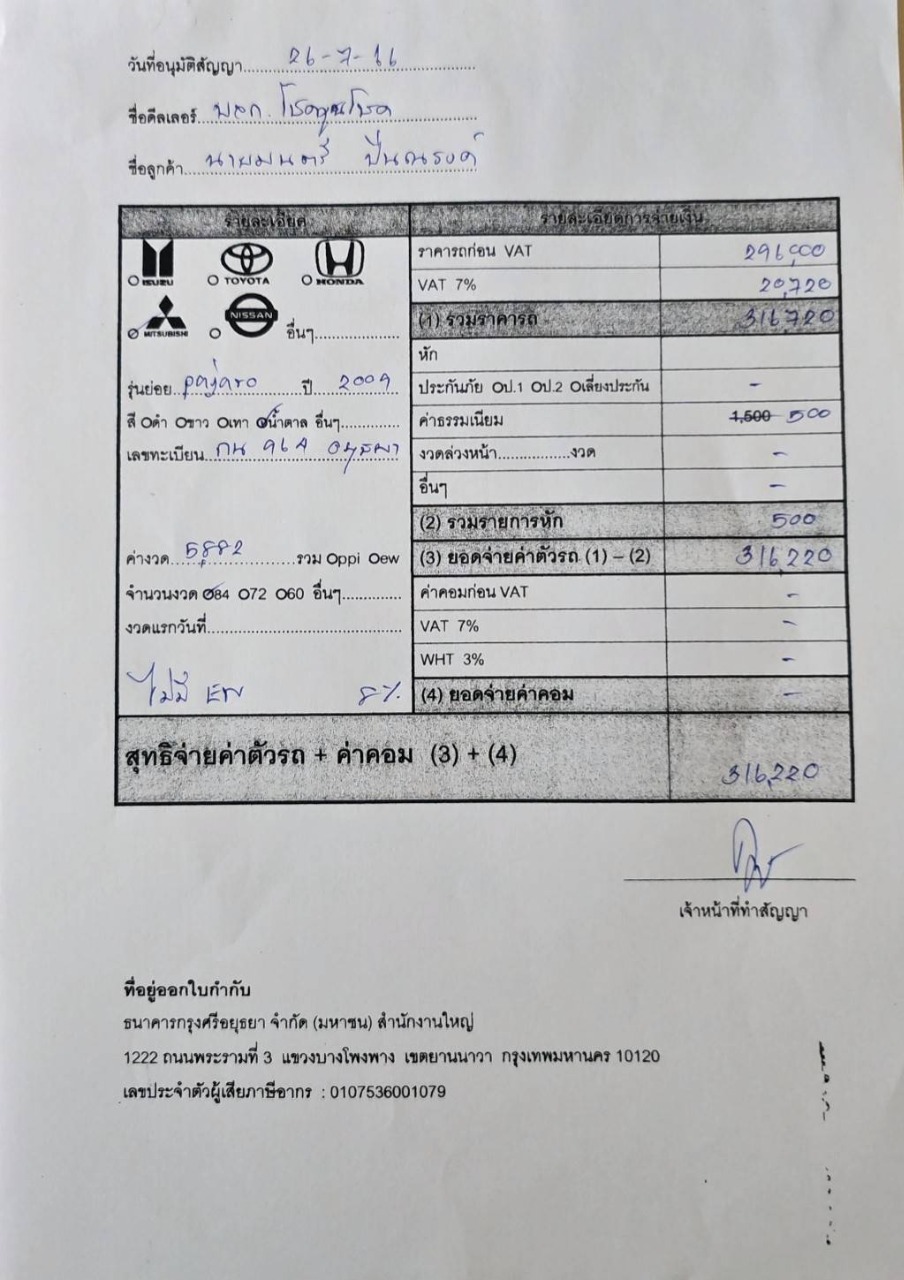 วันที่อนุมัติสัญญา........ 26-7-66
ชื่อดีลเลอร์....
ชื่อลูกค้า.... นายมนตรี ปิ่นณรงค์
รายละเอียด
ISUZU TOYOTA HONDA
MITSUBISHI NISSAN อื่นๆ....................
รุ่นย่อย.. pajaro ปี 2009
สี Oดำ Oขาว Oเทา Oน้ำตาล อื่นๆ..............
เลขทะเบียน.. กน 969 อยุธยา
ค่างวด.. 5,882 ..........รวม Oppi Oew
จำนวนงวด O84 O72 O60 อื่นๆ..............
งวดแรกวันที่..............................................
ไม่มี EW 8%
รายละเอียดการจ่ายเงิน
ราคารถก่อน VAT 296,000
VAT 7% 20,720
(1) รวมราคารถ 316,720
หัก
ประกันภัย Oป.1 Oป.2 Oเลี่ยงประกัน -
ค่าธรรมเนียม 1,500 500
งวดล่วงหน้า.................งวด -
อื่นๆ -
(2) รวมรายการหัก 500
(3) ยอดจ่ายค่าตัวรถ (1) – (2) 316,220
ค่าคอมก่อน VAT -
VAT 7% -
WHT 3% -
(4) ยอดจ่ายค่าคอม -
สุทธิจ่ายค่าตัวรถ + ค่าคอม (3) + (4) 316,220
เจ้าหน้าที่ทำสัญญา
ที่อยู่ออกใบกำกับ
ธนาคารกรุงศรีอยุธยา จำกัด (มหาชน) สำนักงานใหญ่
1222 ถนนพระรามที่ 3 แขวงบางโพงพาง เขตยานนาวา กรุงเทพมหานคร 10120
เลขประจำตัวผู้เสียภาษีอากร : 0107536001079